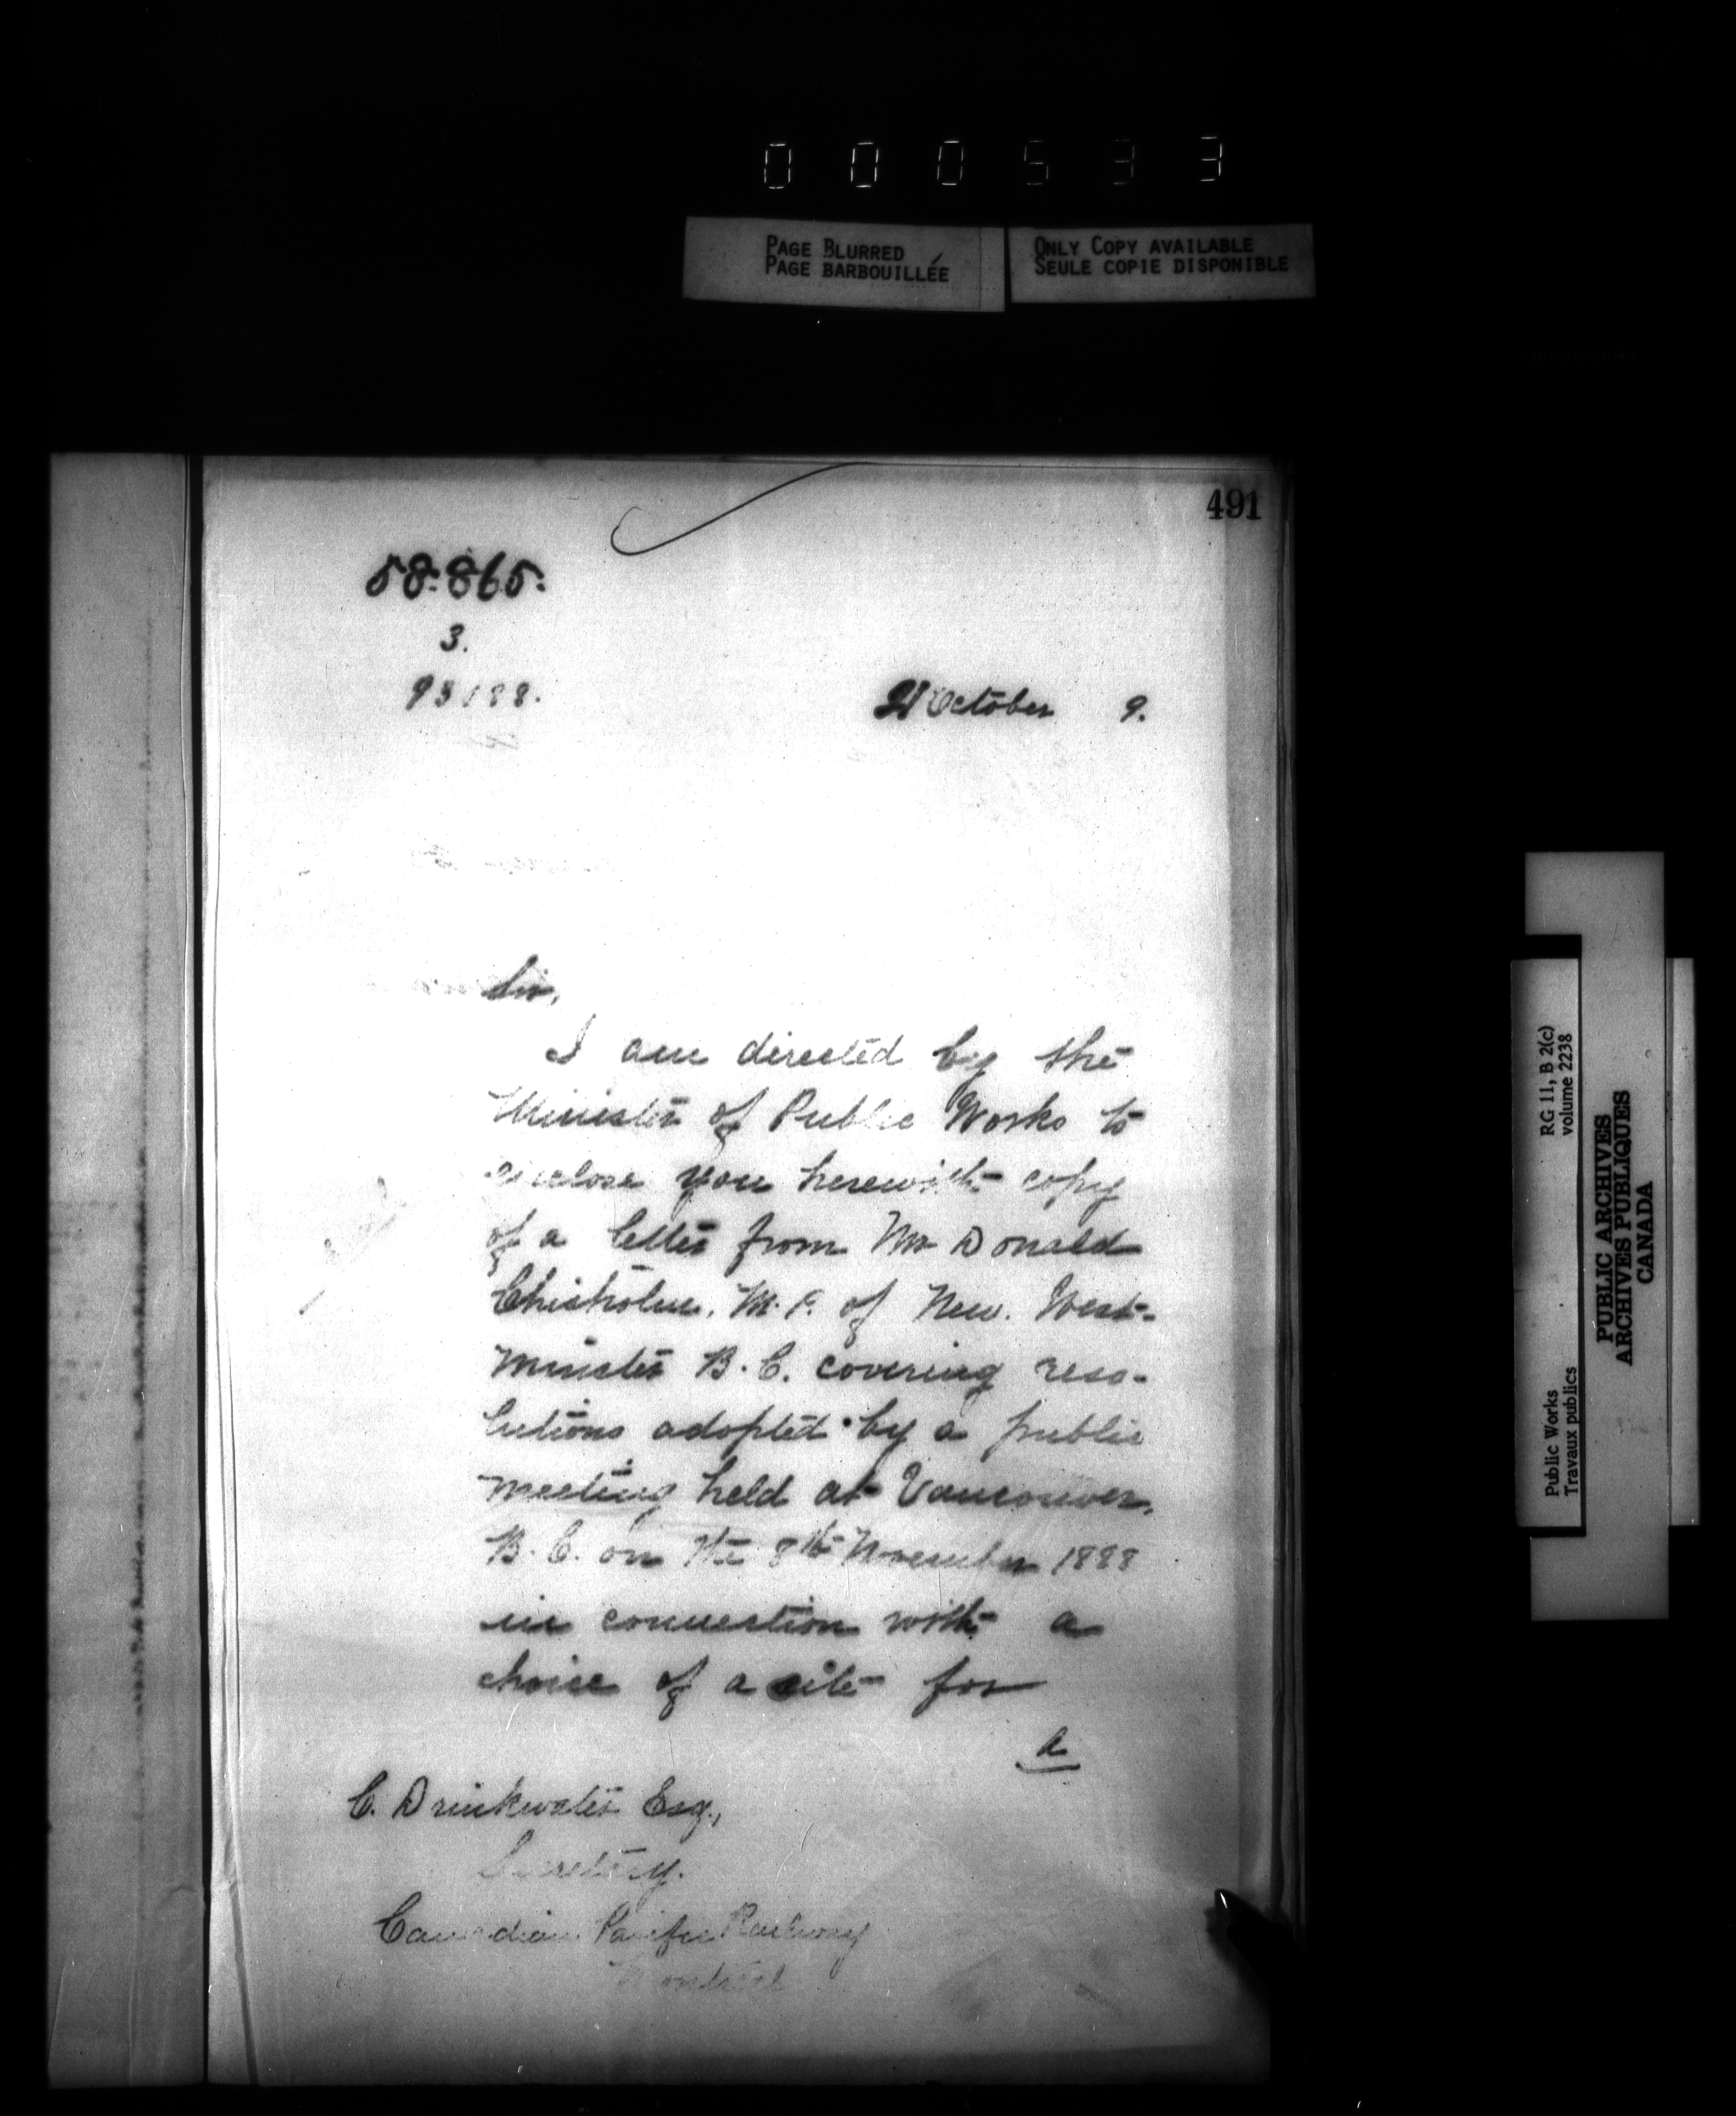 000533
PAGE BLURRED
PAGE BARBOUILLÉE
ONLY COPY AVAILABLE
SEULE COPIE DISPONIBLE
491
58.865.
3.
93188.
21 October 9.
Sir,
I am directed by the
Minister of Public Works to
enclose you herewith copy
of a letter from Mr Donald
Chisholm. M.P. of New. West-
minster B.C. covering reso-
lutions adopted by a public
meeting held at Vancouver,
B.C. on the 8th November 1888
in connection with a
choice of a site for
a
C. Drinkwater Esq.,
Secretary.
Canadian Pacific Railway
Montreal
RG 11, B 2(c)
volume 2238
Public Works
Travaux publics
PUBLIC ARCHIVES
ARCHIVES PUBLIQUES
CANADA